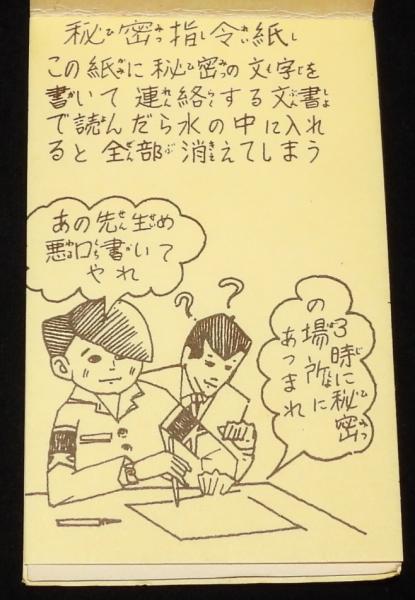 秘密指令紙
この紙に秘密の文字を
書いて連絡する文書
で読んだら水の中に入れ
ると全部消えてしまう
あの先生め
悪口書いて
やれ
3時に秘密
の場所に
あつまれ